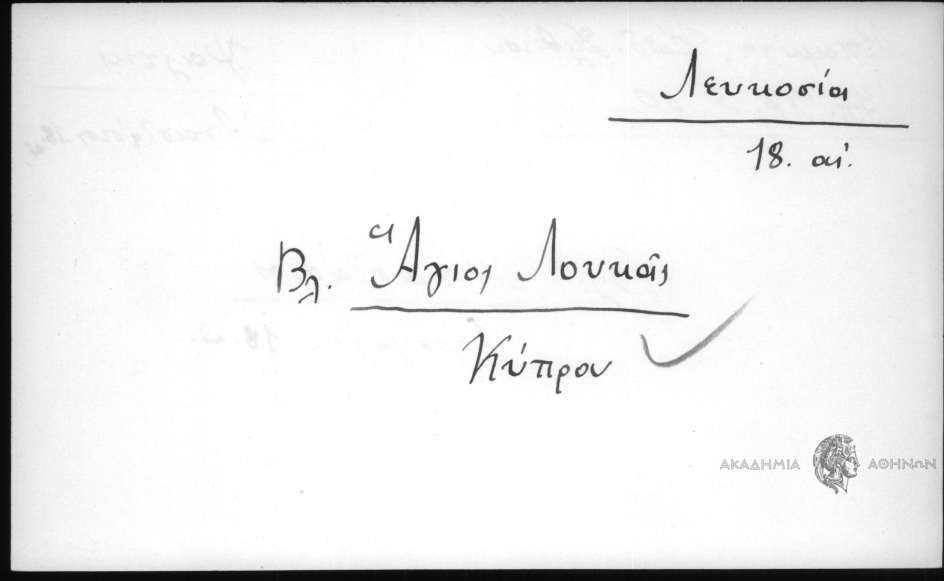 Λευκοσία
18. αἰ.
Βλ. Ἅγιος Λουκᾶς
Κύπρου
ΑΚΑΔΗΜΙΑ ΑΘΗΝΩΝ